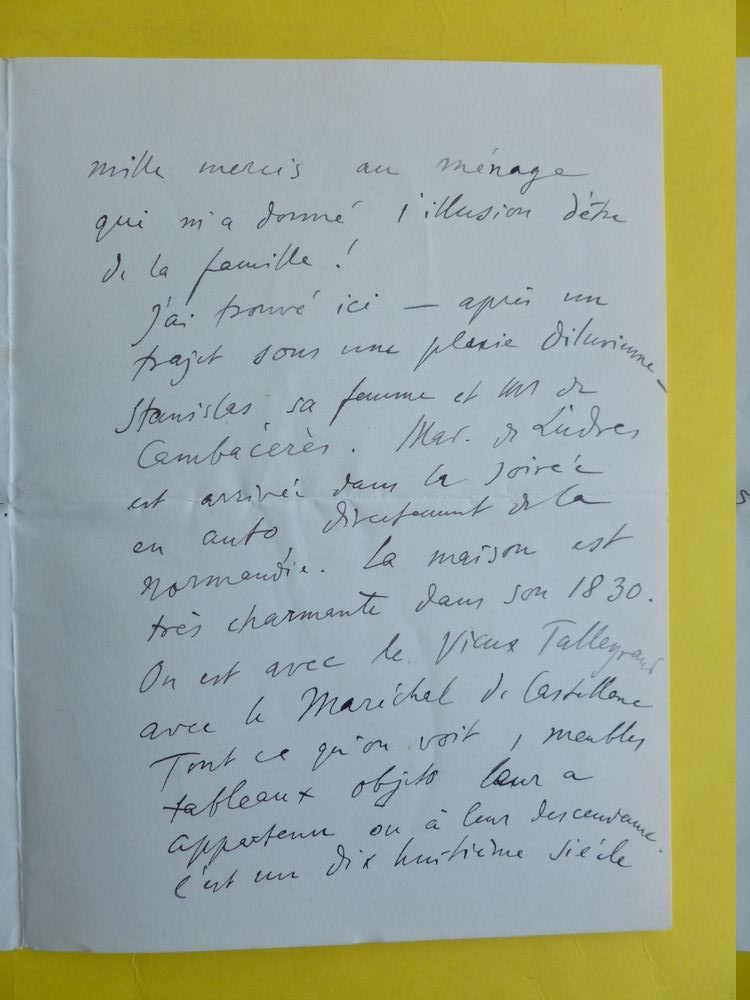 mille mercis au ménage
qui m'a donné l'illusion d'être
de la famille !
J'ai trouvé ici — après un
trajet sous une pluie diluvienne —
Stanislas sa femme et
Cambacérès. Mad. de Ludres
est arrivée dans la soirée
en auto directement de la
Normandie. La maison est
très charmante dans son 1830.
On est avec le vieux Talleyrand
avec le Maréchal de Castellane
Tout ce qu'on voit, meubles
tableaux objets leur a
appartenu ou à leur descendance.
C'est un dix huitième siècle